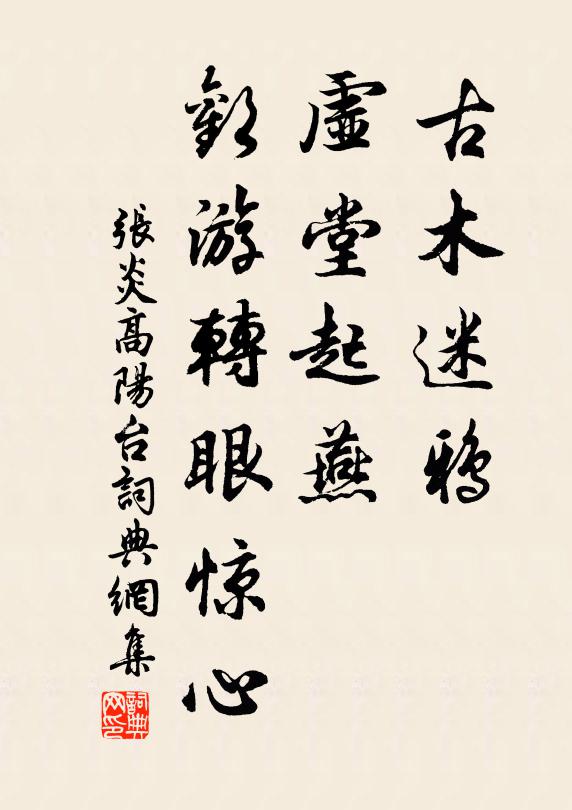 古木迷鴉
虛堂起燕
歡游轉眼惊心
張炎高陽台詞典網集
詞典网印